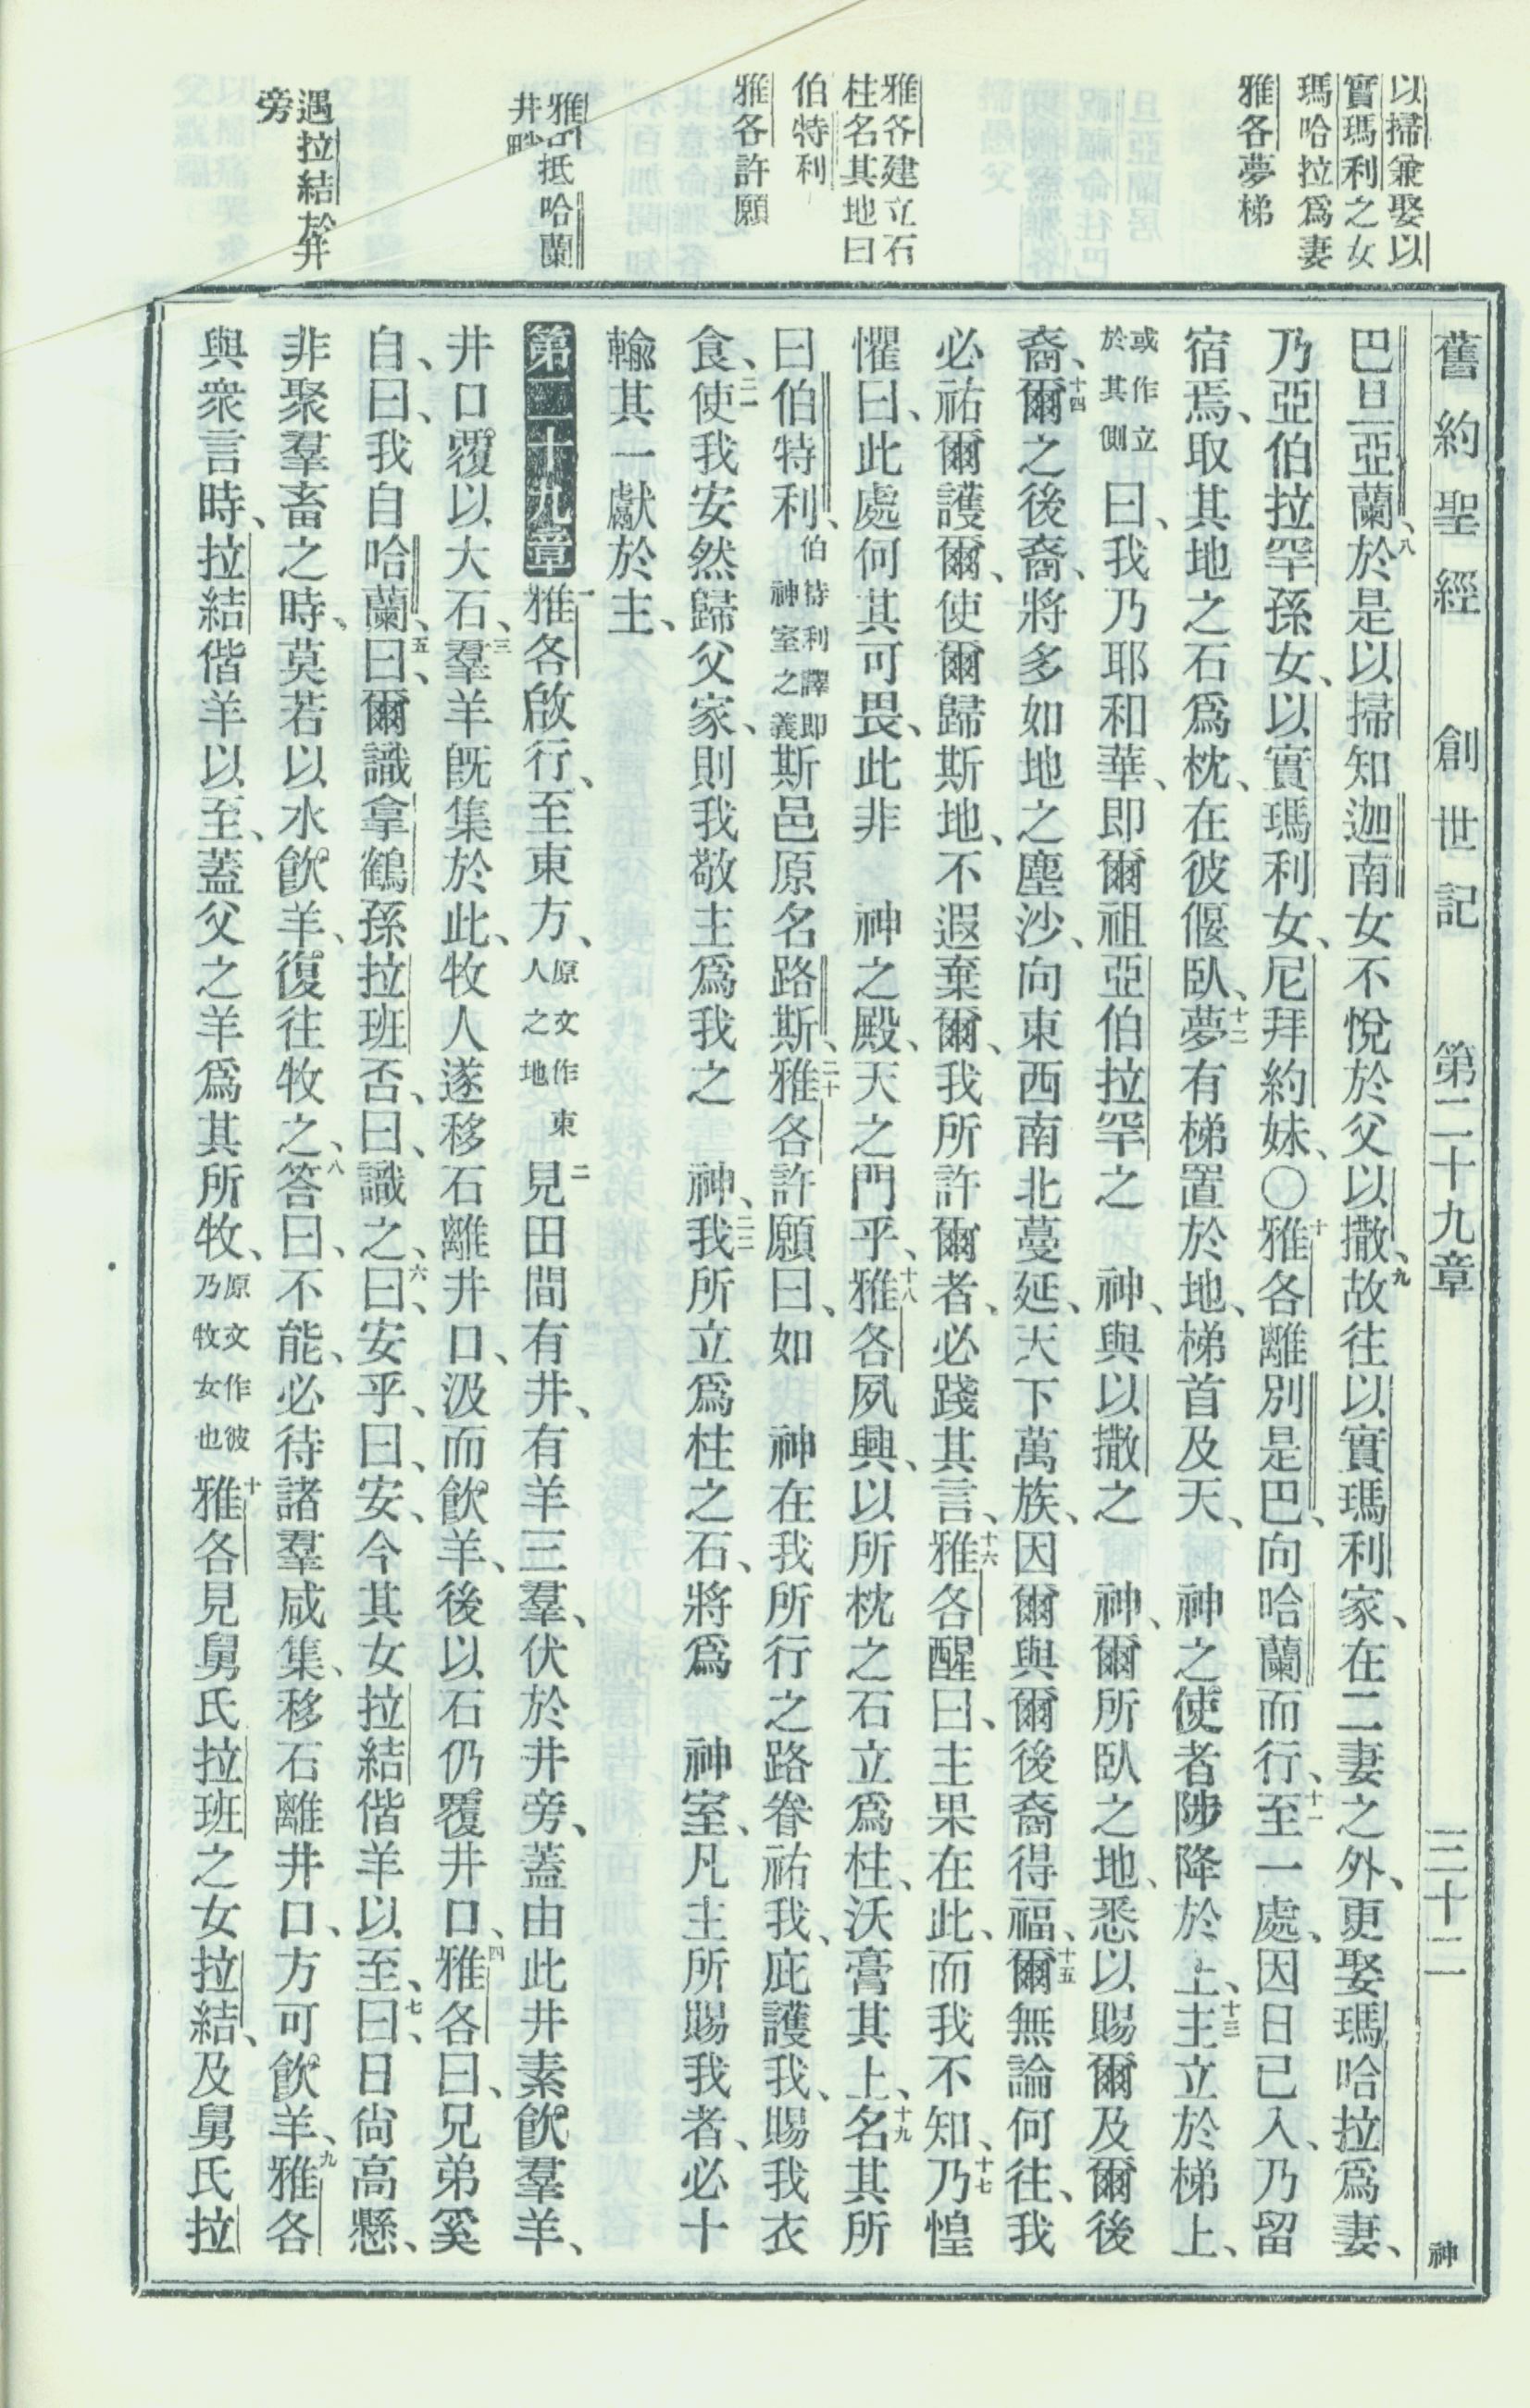 舊約聖經　創世記　第二十九章　三十二　神
以掃兼娶以
實瑪利之女
瑪哈拉爲妻
雅各夢梯
雅各建立石
柱名其地曰
伯特利
雅各許願
抵哈蘭
遇拉結於井
旁
巴旦亞蘭、八於是以掃知迦南女不悅於父以撒、九故往以實瑪利家、在二妻之外、更娶瑪哈拉爲妻、
乃亞伯拉罕孫女、以實瑪利女、尼拜約妹、〇十雅各離別是巴、向哈蘭而行、十一至一處、因日已入、乃留
宿焉、取其地之石爲枕、在彼偃臥、十二夢有梯置於地、梯首及天、　神之使者陟降於上、十三主立於梯上、
或作立於其側曰、我乃耶和華、即爾祖亞伯拉罕之　神、與以撒之　神、爾所臥之地、悉以賜爾及爾後
裔、十四爾之後裔、將多如地之塵沙、向東西南北蔓延、天下萬族、因爾與爾後裔得福、十五爾無論何往、我
必祐爾護爾、使爾歸斯地、不遐棄爾、我所許爾者、必踐其言、十六雅各醒曰、主果在此、而我不知、十七乃惶
懼曰、此處何其可畏、此非　神之殿、天之門乎、十八雅各夙興、以所枕之石立爲柱、沃膏其上、十九名其所
曰伯特利、伯特利譯即神室之義斯邑原名路斯、二十雅各許願曰、如　神在我所行之路眷祐我、庇護我、賜我衣
食、二一使我安然歸父家、則我敬主爲我之　神、二二我所立爲柱之石、將爲　神室、凡主所賜我者、必十
輸其一獻於主、
第二十九章一雅各啟行、至東方、原文作東人之地二見田間有井、有羊三羣、伏於井旁、蓋由此井素飲羣羊、
井口覆以大石、三羣羊旣集於此、牧人遂移石離井口、汲而飲羊、後以石仍覆井口、四雅各曰、兄弟奚
自、曰、我自哈蘭、五曰、爾識拿鶴孫拉班否、曰、識之、六曰、安乎、曰、安、今其女拉結偕羊以至、七曰、日尙高懸、
非聚羣畜之時、莫若以水飲羊、復往牧之、八答曰、不能、必待諸羣咸集、移石離井口、方可飲羊、九雅各
與衆言時、拉結偕羊以至、蓋父之羊爲其所牧、原文作彼乃牧女也十雅各見舅氏拉班之女拉結、及舅氏拉